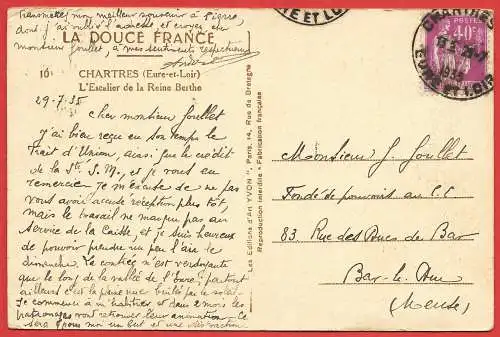 Transmettez mon meilleur souvenir à
dont j'ai oublié l'adresse, et croyez, cher
monsieur Joullet, à mes sentiments respectueux
LA DOUCE FRANCE
10 CHARTRES (Eure-et-Loir)
L'Escalier de la Reine Berthe
29-7.35
Cher monsieur Joullet
j'ai bien reçu en son temps le
Trait d'Union, ainsi que le crédit
de la Sté S. M., et je vous en
remercie. Je m'excuse de ne pas
vous avoir accusé réception plus tôt,
mais le travail ne manque pas au
Service de la Caisse, et je suis heureux
de pouvoir prendre un peu l'air le
dimanche. La contrée n'est verdoyante
que le long de la vallée de l'Eure; partout
ailleurs c'est la plaine nue brûlée par le soleil.
Je commence à m'habituer et dans 2 mois les
patronages vont retrouver leur animation. Ce
sera pour moi un but et une distraction
Les Editions d'Art "YVON", Paris, 14, Rue de Bretagne
Reproduction interdite - Fabrication française
ET LOIR
CHARTRES
EURE ET LOIR
1935
POSTES
40c
Monsieur J. Joullet
Fondé de pouvoirs au C.C
83, Rue des Ducs de Bar
Bar-le-Duc
(Meuse)